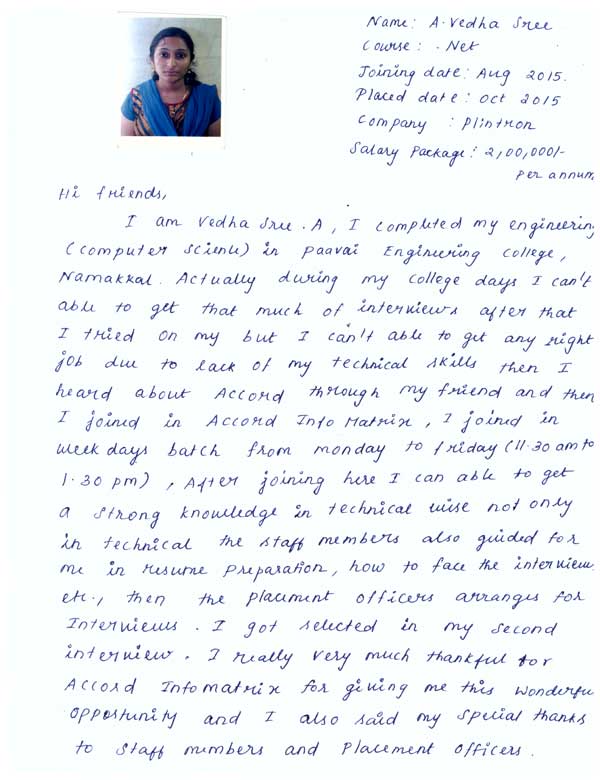 Name: A. Vedha Sree
Course: .Net
Joining date: Aug 2015.
Placed date: Oct 2015
Company : Plintron
Salary Package: 2,00,000/-
per annum
Hi friends,
I am Vedha Sree .A, I completed my engineering
(Computer Science) in Paavai Engineering College,
Namakkal. Actually during my college days I can't
able to get that much of interviews after that
I tried on my but I can't able to get any right
job due to lack of my technical skills then I
heard about Accord through my friend and then
I joined in Accord Info Matrix, I joined in
weekdays batch from monday to friday (11.30 am to
1.30 pm), After joining here I can able to get
a strong knowledge in technical wise not only
in technical the staff members also guided for
me in resume preparation, how to face the interview
etc., then the placement officers arranges for
Interviews. I got selected in my second
interview. I really very much thankful for
Accord Infomatrix for giving me this wonderfu
opportunity and I also said my special thanks
to staff members and Placement Officers.